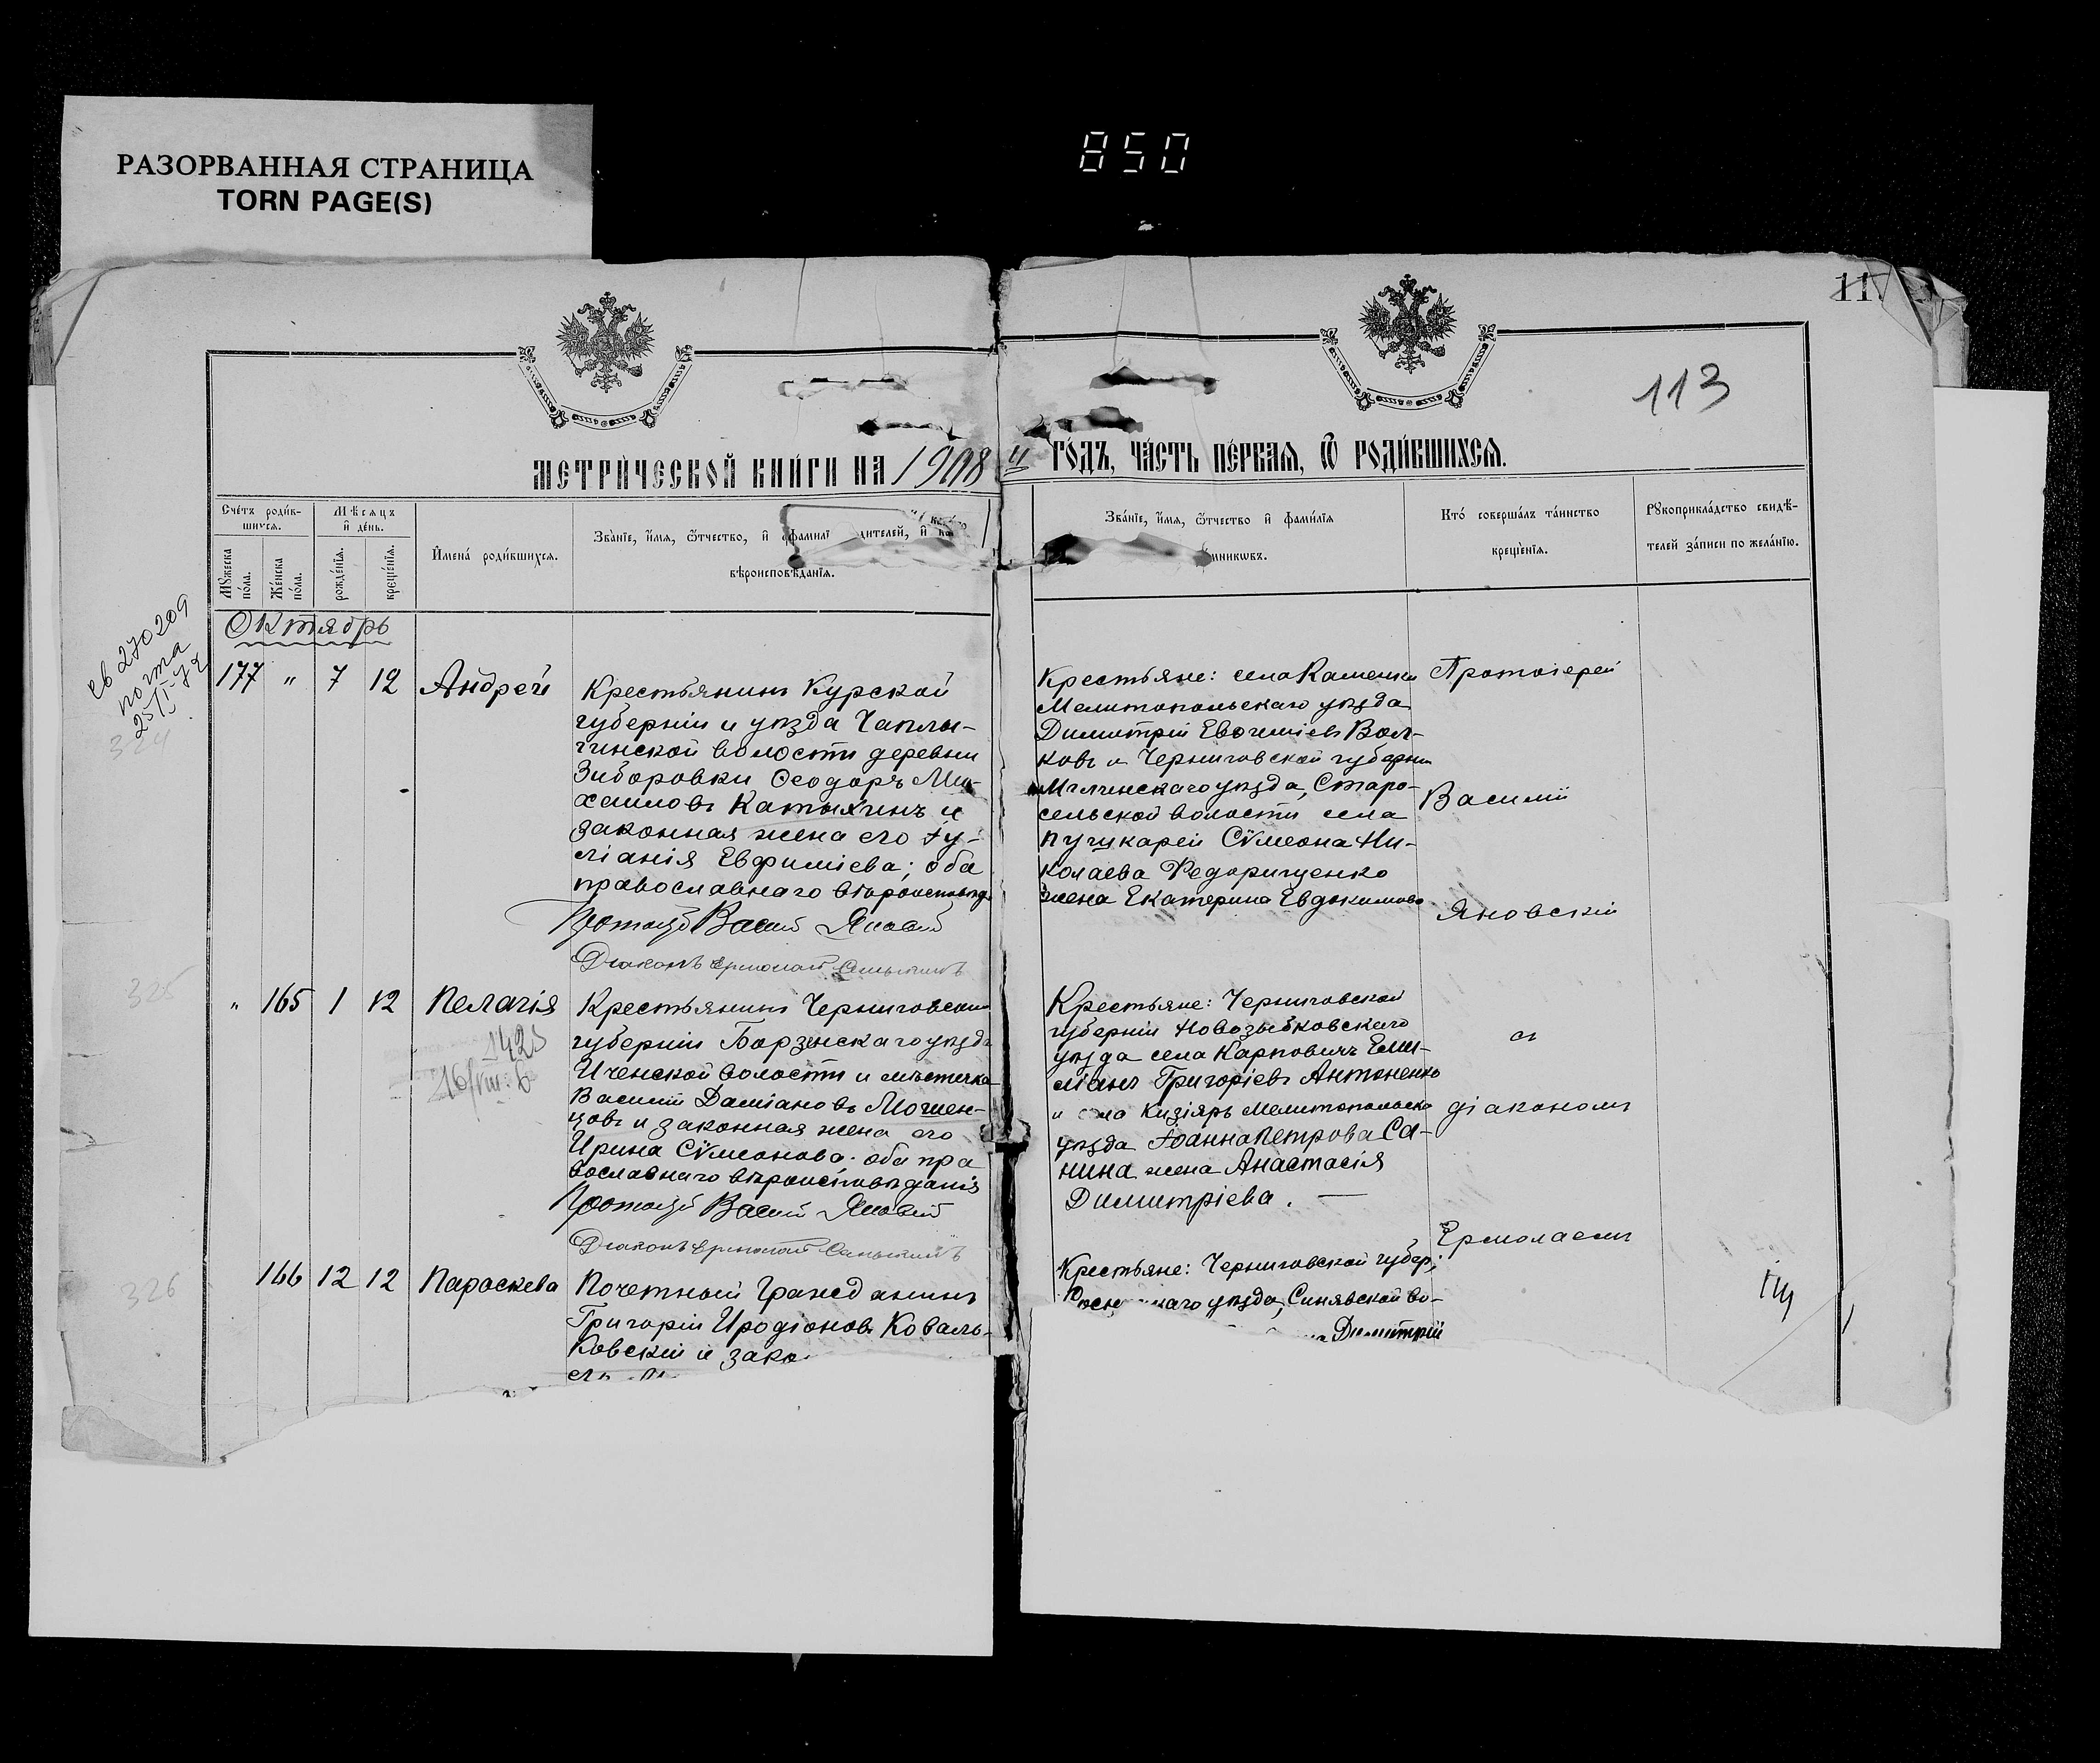 РАЗОРВАННАЯ СТРАНИЦА
TORN PAGE(S)
850
11
113
МЕТРИ́ЧЕСКОЙ КНИ́ГИ НА 1908 й ГО́ДЪ, ЧА́СТЬ ПЕ́РВАЯ, Ѿ РОДИ́ВШИХСЯ.
Сче́тъ роди́в-
шихся.
Мꙋжеска по́ла.
Же́нска по́ла.
Мѣ́сяцъ
и де́нь.
рожде́нїя.
креще́нїя.
Имена̀ роди́вшихся.
Зва́нїе, и́мя, ѻ́тчество, и фамилї дителей, и како́го
вѣроисповѣ́данїя.
Зва́нїе, и́мя, ѻ́тчество и фами́лїя
мникѡвъ.
Кто̀ соверша́лъ та́инство
креще́нїя.
Рꙋкоприкла́дство свидѣ́-
телей за́писи по жела́нїю.
Октябрь
св 270209
почта
324
177 " 7 12 Андрей
Крестьянинъ Курской
губерніи и уѣзда Чаплы-
гинской волости деревни
Зиборовки Ѳеодоръ Ми-
хаиловъ Катыхинъ и
законная жена его Іу-
ліанія Евфиміева; оба
православнаго вѣроисповѣд.
Крестьяне: села Каменки
Мелитопольскаго уѣзда
Димитрій Евѳиміевъ Вол-
ковъ и Черниговской губерни
Мглинскаго уѣзда, Старо-
сельской волости села
Пучкарей Сѵмеона Ни-
колаева Федорищенко
жена Екатерина Евдокимова
Протоіерей
Василій
Яновскій
325
" 165 1 12 Пелагія
1425
Крестьянинъ Черниговской
губерніи Борзенскаго уѣзда
Иченской волости и мѣстечка
Василій Даміановъ Мошен-
цовъ и законная жена его
Ирина Сѵмеонова. оба пра
вославнаго вѣроисповѣданія
Крестьяне: Черниговской
губерніи Новозыбковскаго
уѣзда села Карповичъ Еми-
ліанъ Григоріевъ Антоненко
и села Кизіяръ Мелитопольска
уѣзда Іоанна Петрова Са-
нина жена Анастасія
Димитріева. —
съ
діакономъ
Ермолаемъ
326
166 12 12 Параскева
Почетный Гражданинъ
Григорій Иродіоновъ Коваль-
ковскій и зако
Крестьяне: Черниговской губер;
Сосн аго уѣзда, Синявской во-
Димитрій